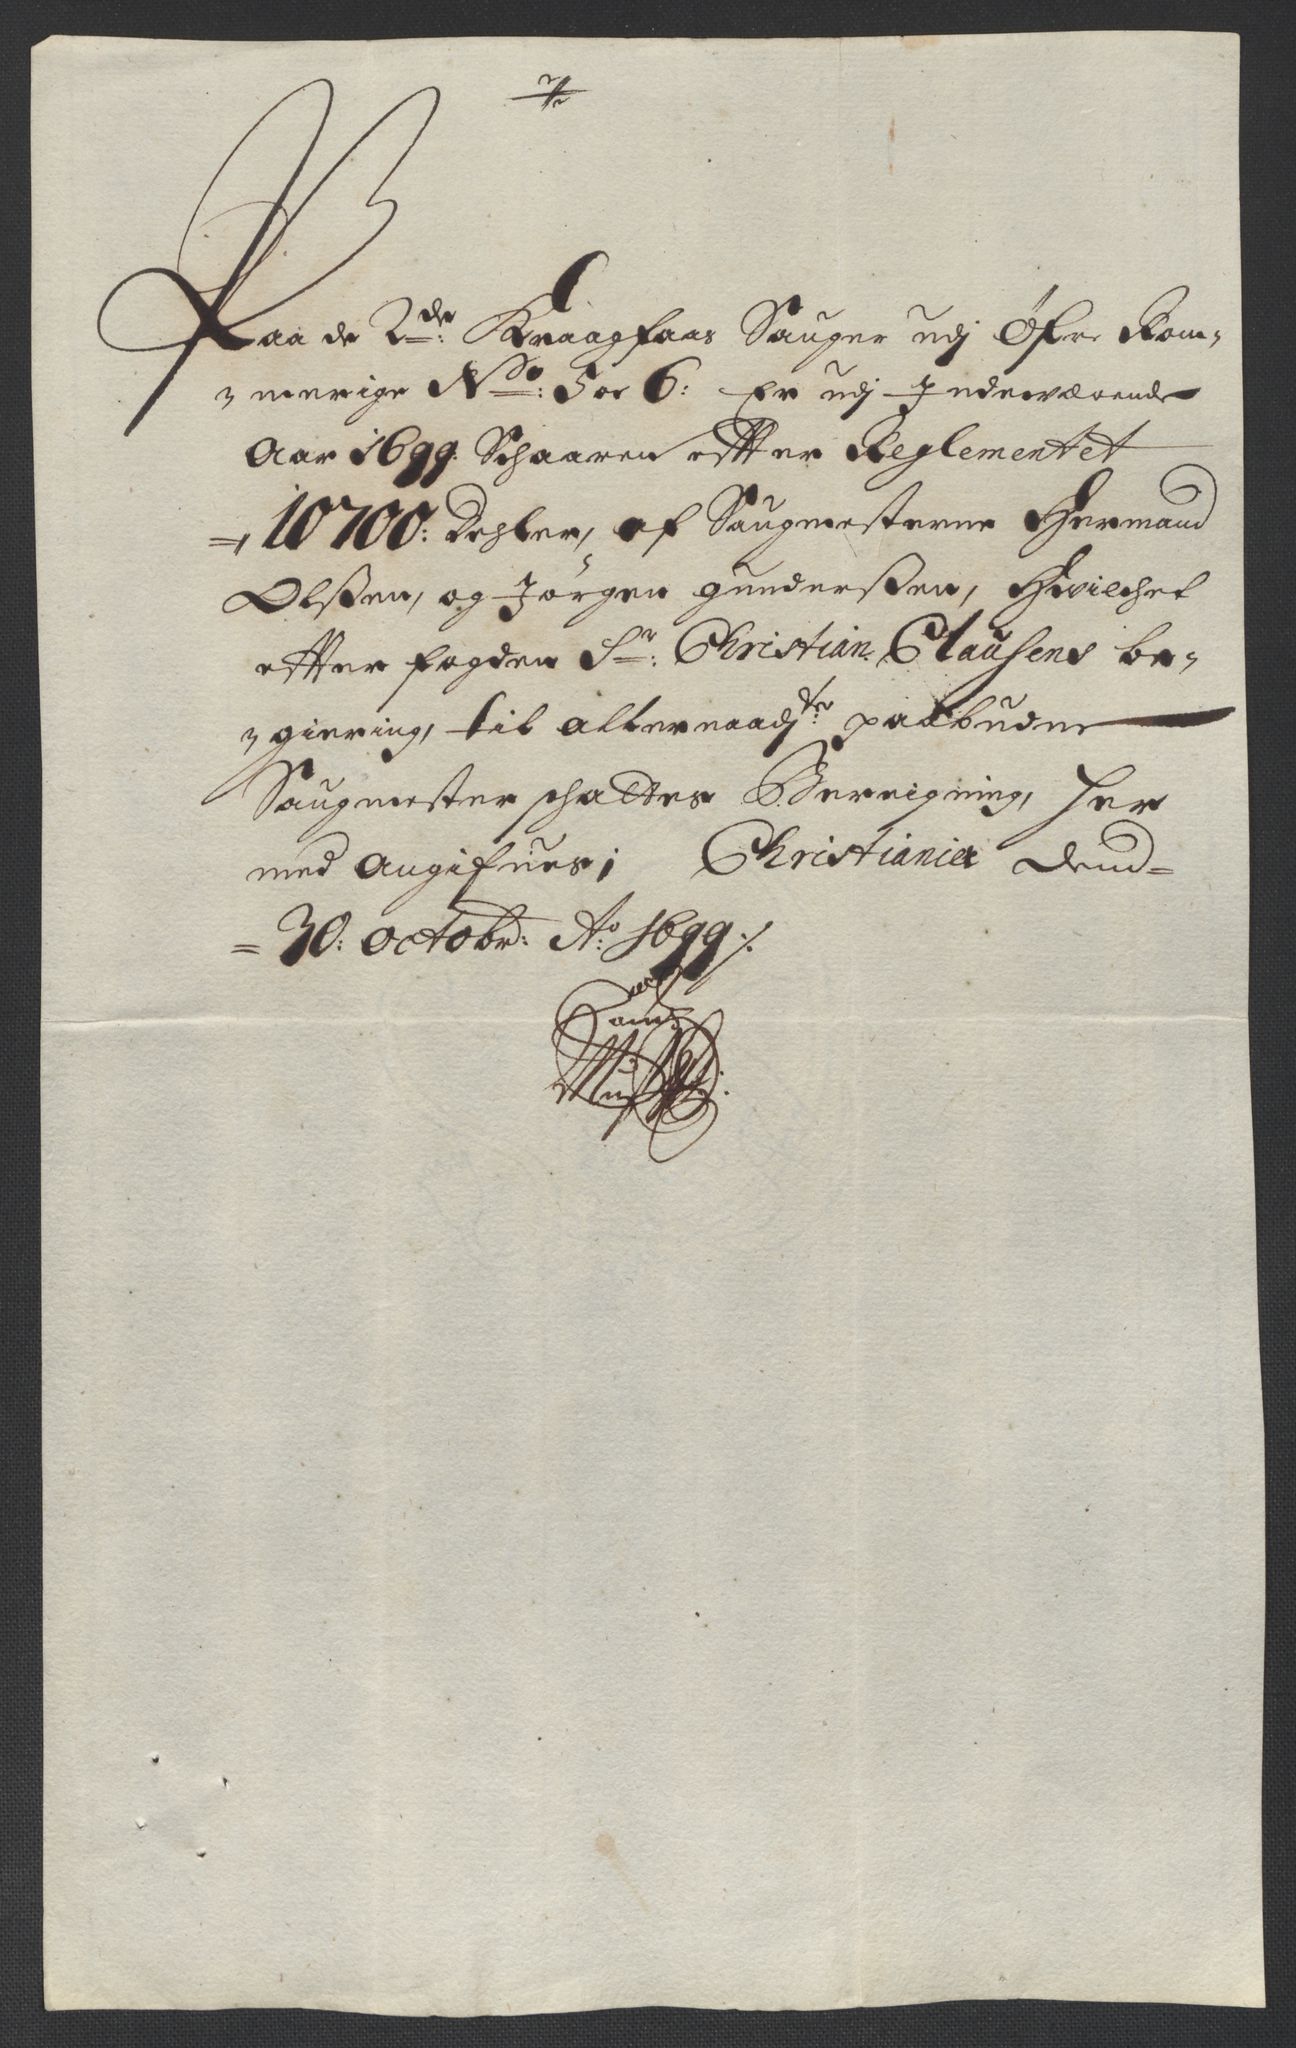 Paa de 2de: Kraagfaas Sauger udj Øfre Rom-
merige No: 5 oc 6: Er udj Indeværende
Aar 1699: Schaaren effter Reglementet
10700: Dehler, af Saugmesterne Hermand
Olßen, og Jörgen Gunderßen, Hvilchet
effter fogden Sr: Christian Clausens be-
giering, til allernaadste: paabudne
Saugmester schattes Bereigning, her
med Angifues; Christiania Dend
30: octobr: Ao: 1699 ./.